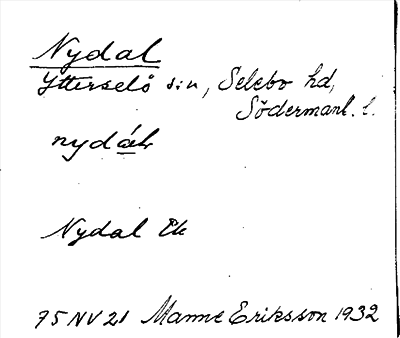 Nydal
Ytterselö sn, Selebo hd,
Södermanl. l.
nydál
Nydal Ek
75 NV 21 Manne Eriksson 1932